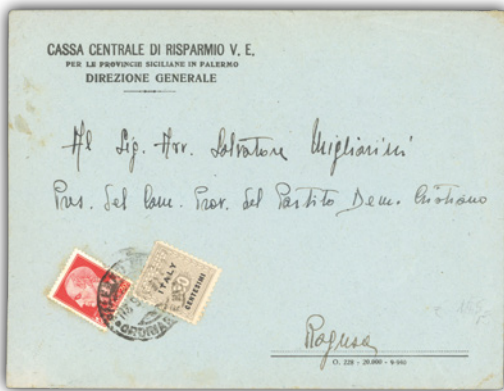 CASSA CENTRALE DI RISPARMIO V. E.
PER LE PROVINCIE SICILIANE IN PALERMO
DIREZIONE GENERALE
Al Sig. Avv. Salvatore Migliorisi
Pres. del Com. Prov. del Partito Dem. Cristiano
ITALY
50
CENTESIMI
Ragusa
O. 229 - 20.000 - 9-942